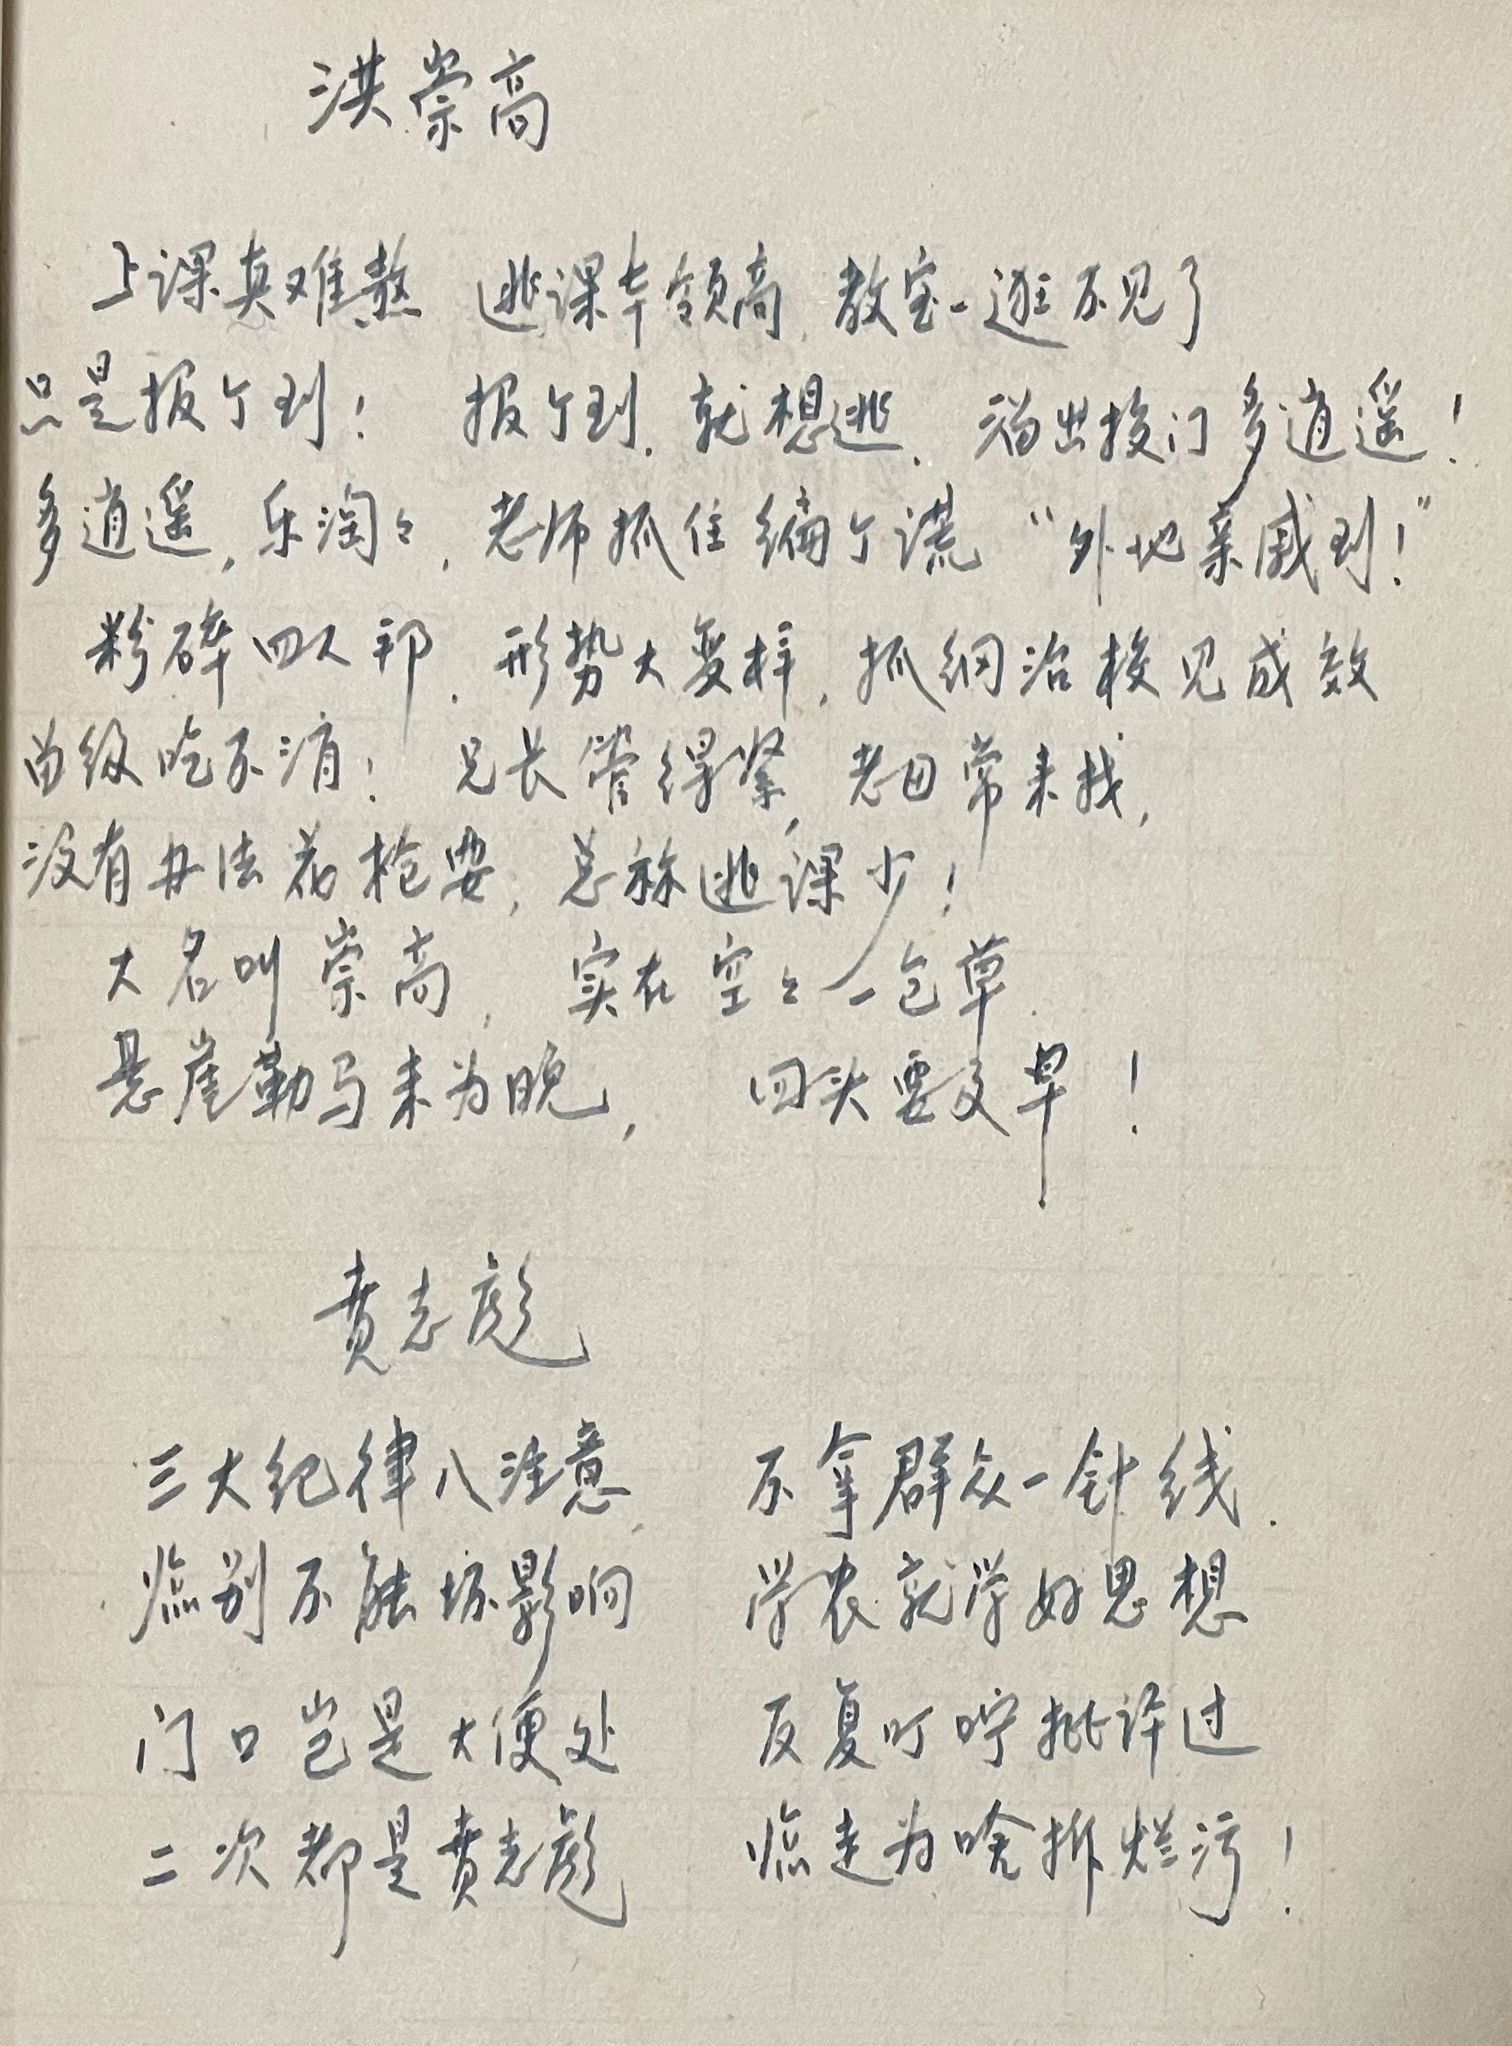 洪崇高
上课真难熬 逃课本领高 教室一逛不见了
只是报个到! 报个到.就想逃. 溜出校门多逍遥!
多逍遥,乐淘々,老师抓住编个谎“外地亲戚到!”
粉碎四人邦.形势大变样,抓纲治校见成效
留级吃不消! 兄长管得紧,老田常来找,
没有办法花枪耍,总称逃课少!
大名叫崇高, 实在空々一包草.
悬崖勒马未为晚, 回头要及早!
贲志彪
三大纪律八注意, 不拿群众一针线.
临别不能坏影响 学农就学好思想
门口岂是大便处 反复叮咛批评过
二次都是贲志彪 临走为啥拆烂污!